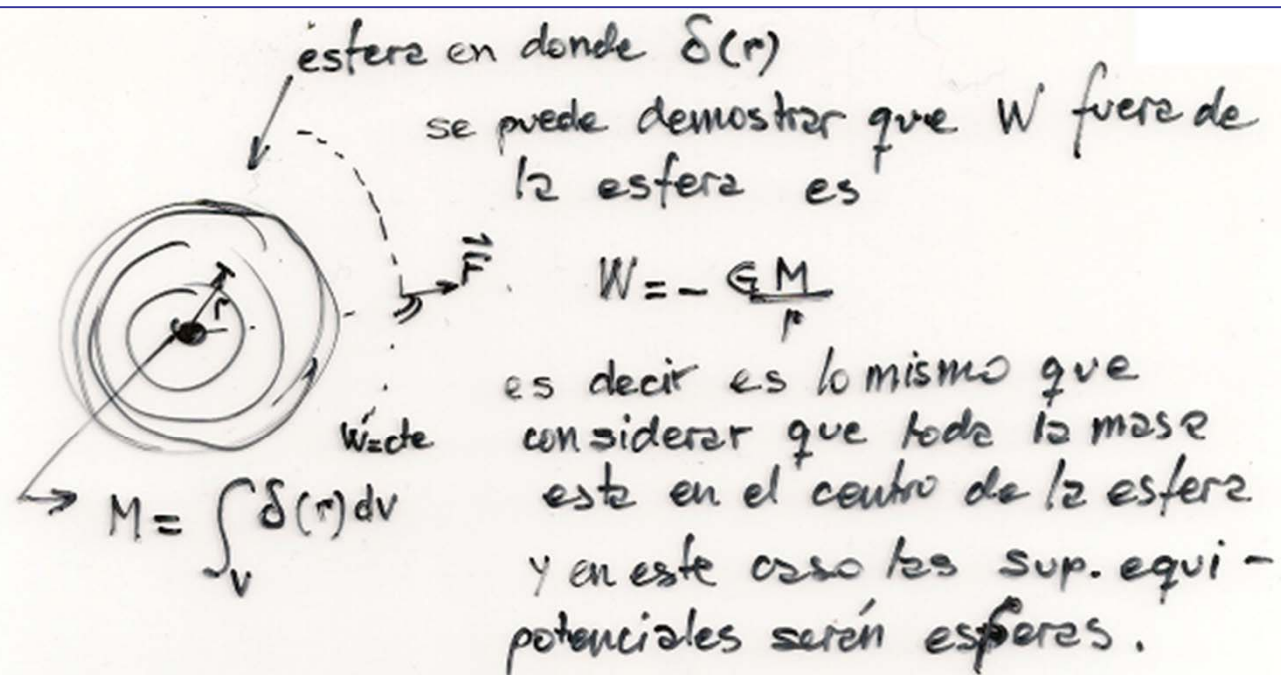 esfera en donde δ(r)
se puede demostrar que W fuera de
la esfera es
F⃗
W = - GM/r
r
es decir es lo mismo que
considerar que toda la masa
W=cte
esta en el centro de la esfera
M = ∫_V δ(r) dv
y en este caso las sup. equi-
potenciales serán esferas.